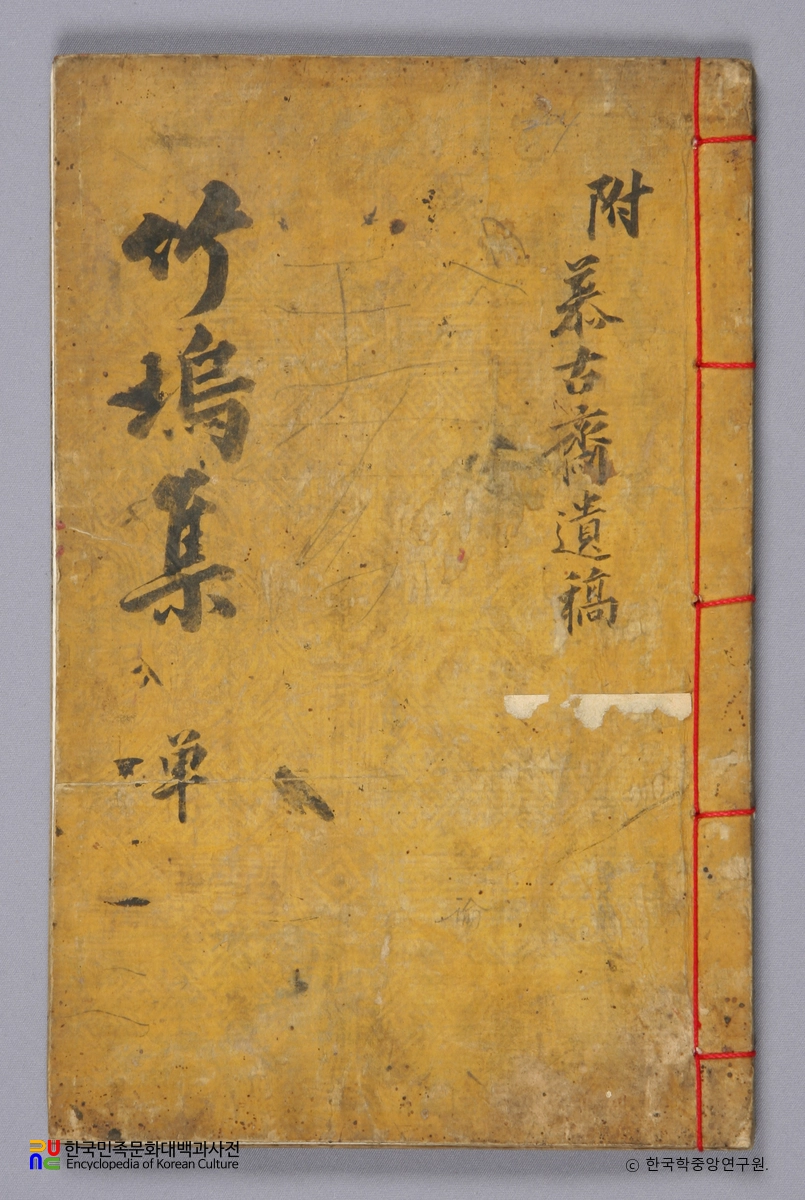 附 慕古齋遺稿
竹塢集 單
한국민족문화대백과사전
Encyclopedia of Korean Culture
ⓒ 한국학중앙연구원.